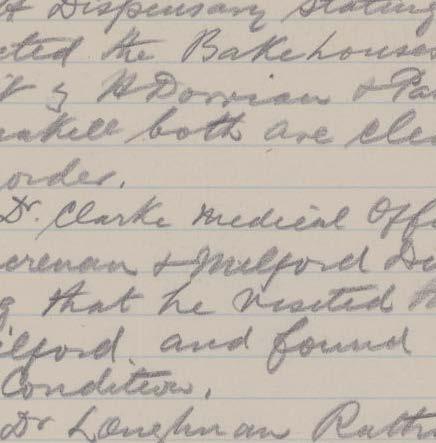 Dispensary stating
cted the Bakehouses
H Dorrian & Pa
akell both are cle
order.
Dr. Clarke Medical Offi
& Milford Di
g that he visited th
ilford and found
Condition.
Dr Loughnan Rath